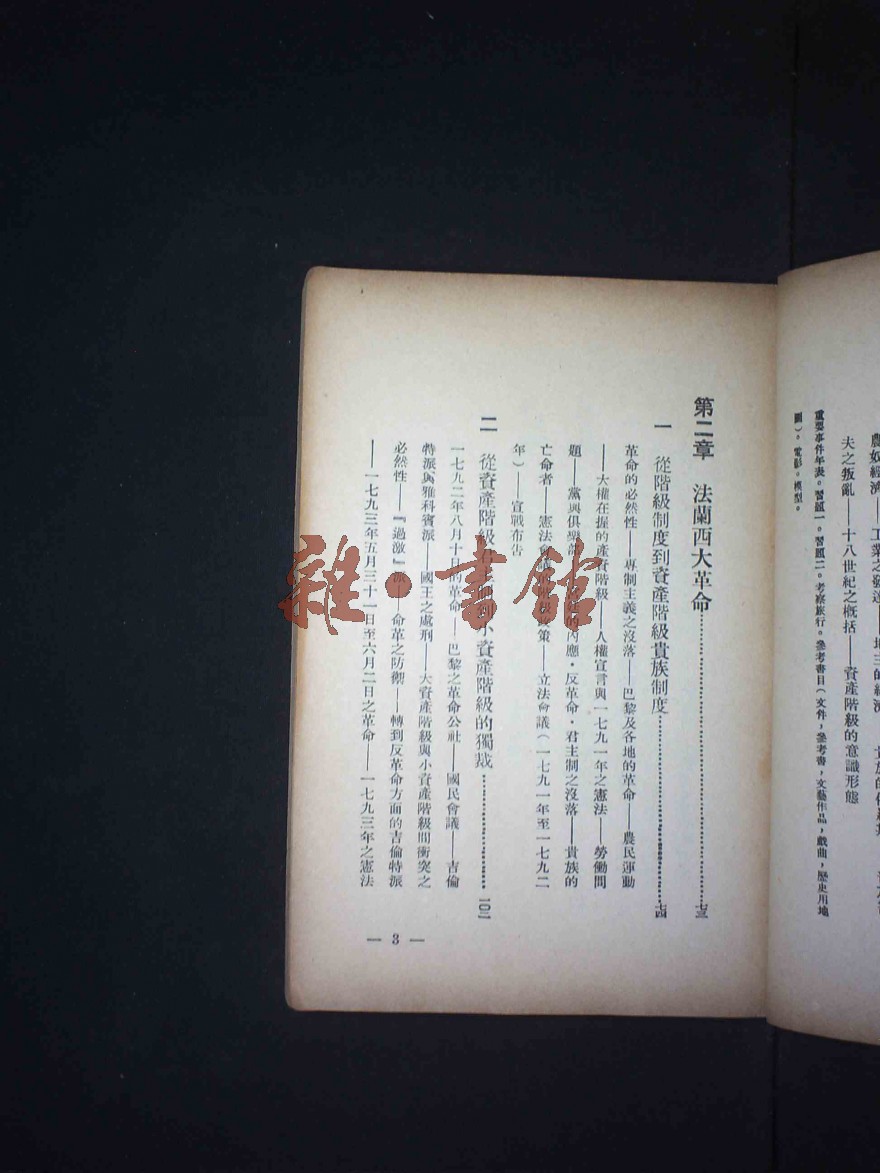 農奴經濟——工業之發達——
夫之叛亂——十八世紀之概括——資產階級的意識形態
重要事件年表。習題一。習題二。考察旅行。參考書目(文件,參考書,文藝作品,戲曲,歷史用地
圖),電影。模型。
第二章 法蘭西大革命……七三
一 從階級制度到資產階級貴族制度……七四
革命的必然性——專制主義之沒落——巴黎及各地的革命——農民運動
——大權在握的產資階級——人權宣言與一七九一年之憲法——勞働問
題——黨與俱樂部——內應·反革命·君主制之沒落——貴族的
亡命者——憲法會議——策——立法會議(一七九一年至一七九二
年)——宣戰布告
二 從資產階級到小資產階級的獨裁……一〇二
一七九二年八月十日的革命——巴黎之革命公社——國民會議——吉倫
特派與雅科賓派——國王之處刑——大資產階級與小資產階級間衝突之
必然性——『過激』派——命革之防禦——轉到反革命方面的吉倫特派
——一七九三年五月三十一日至六月二日之革命——一七九三年之憲法
— 3 —
雜·書館